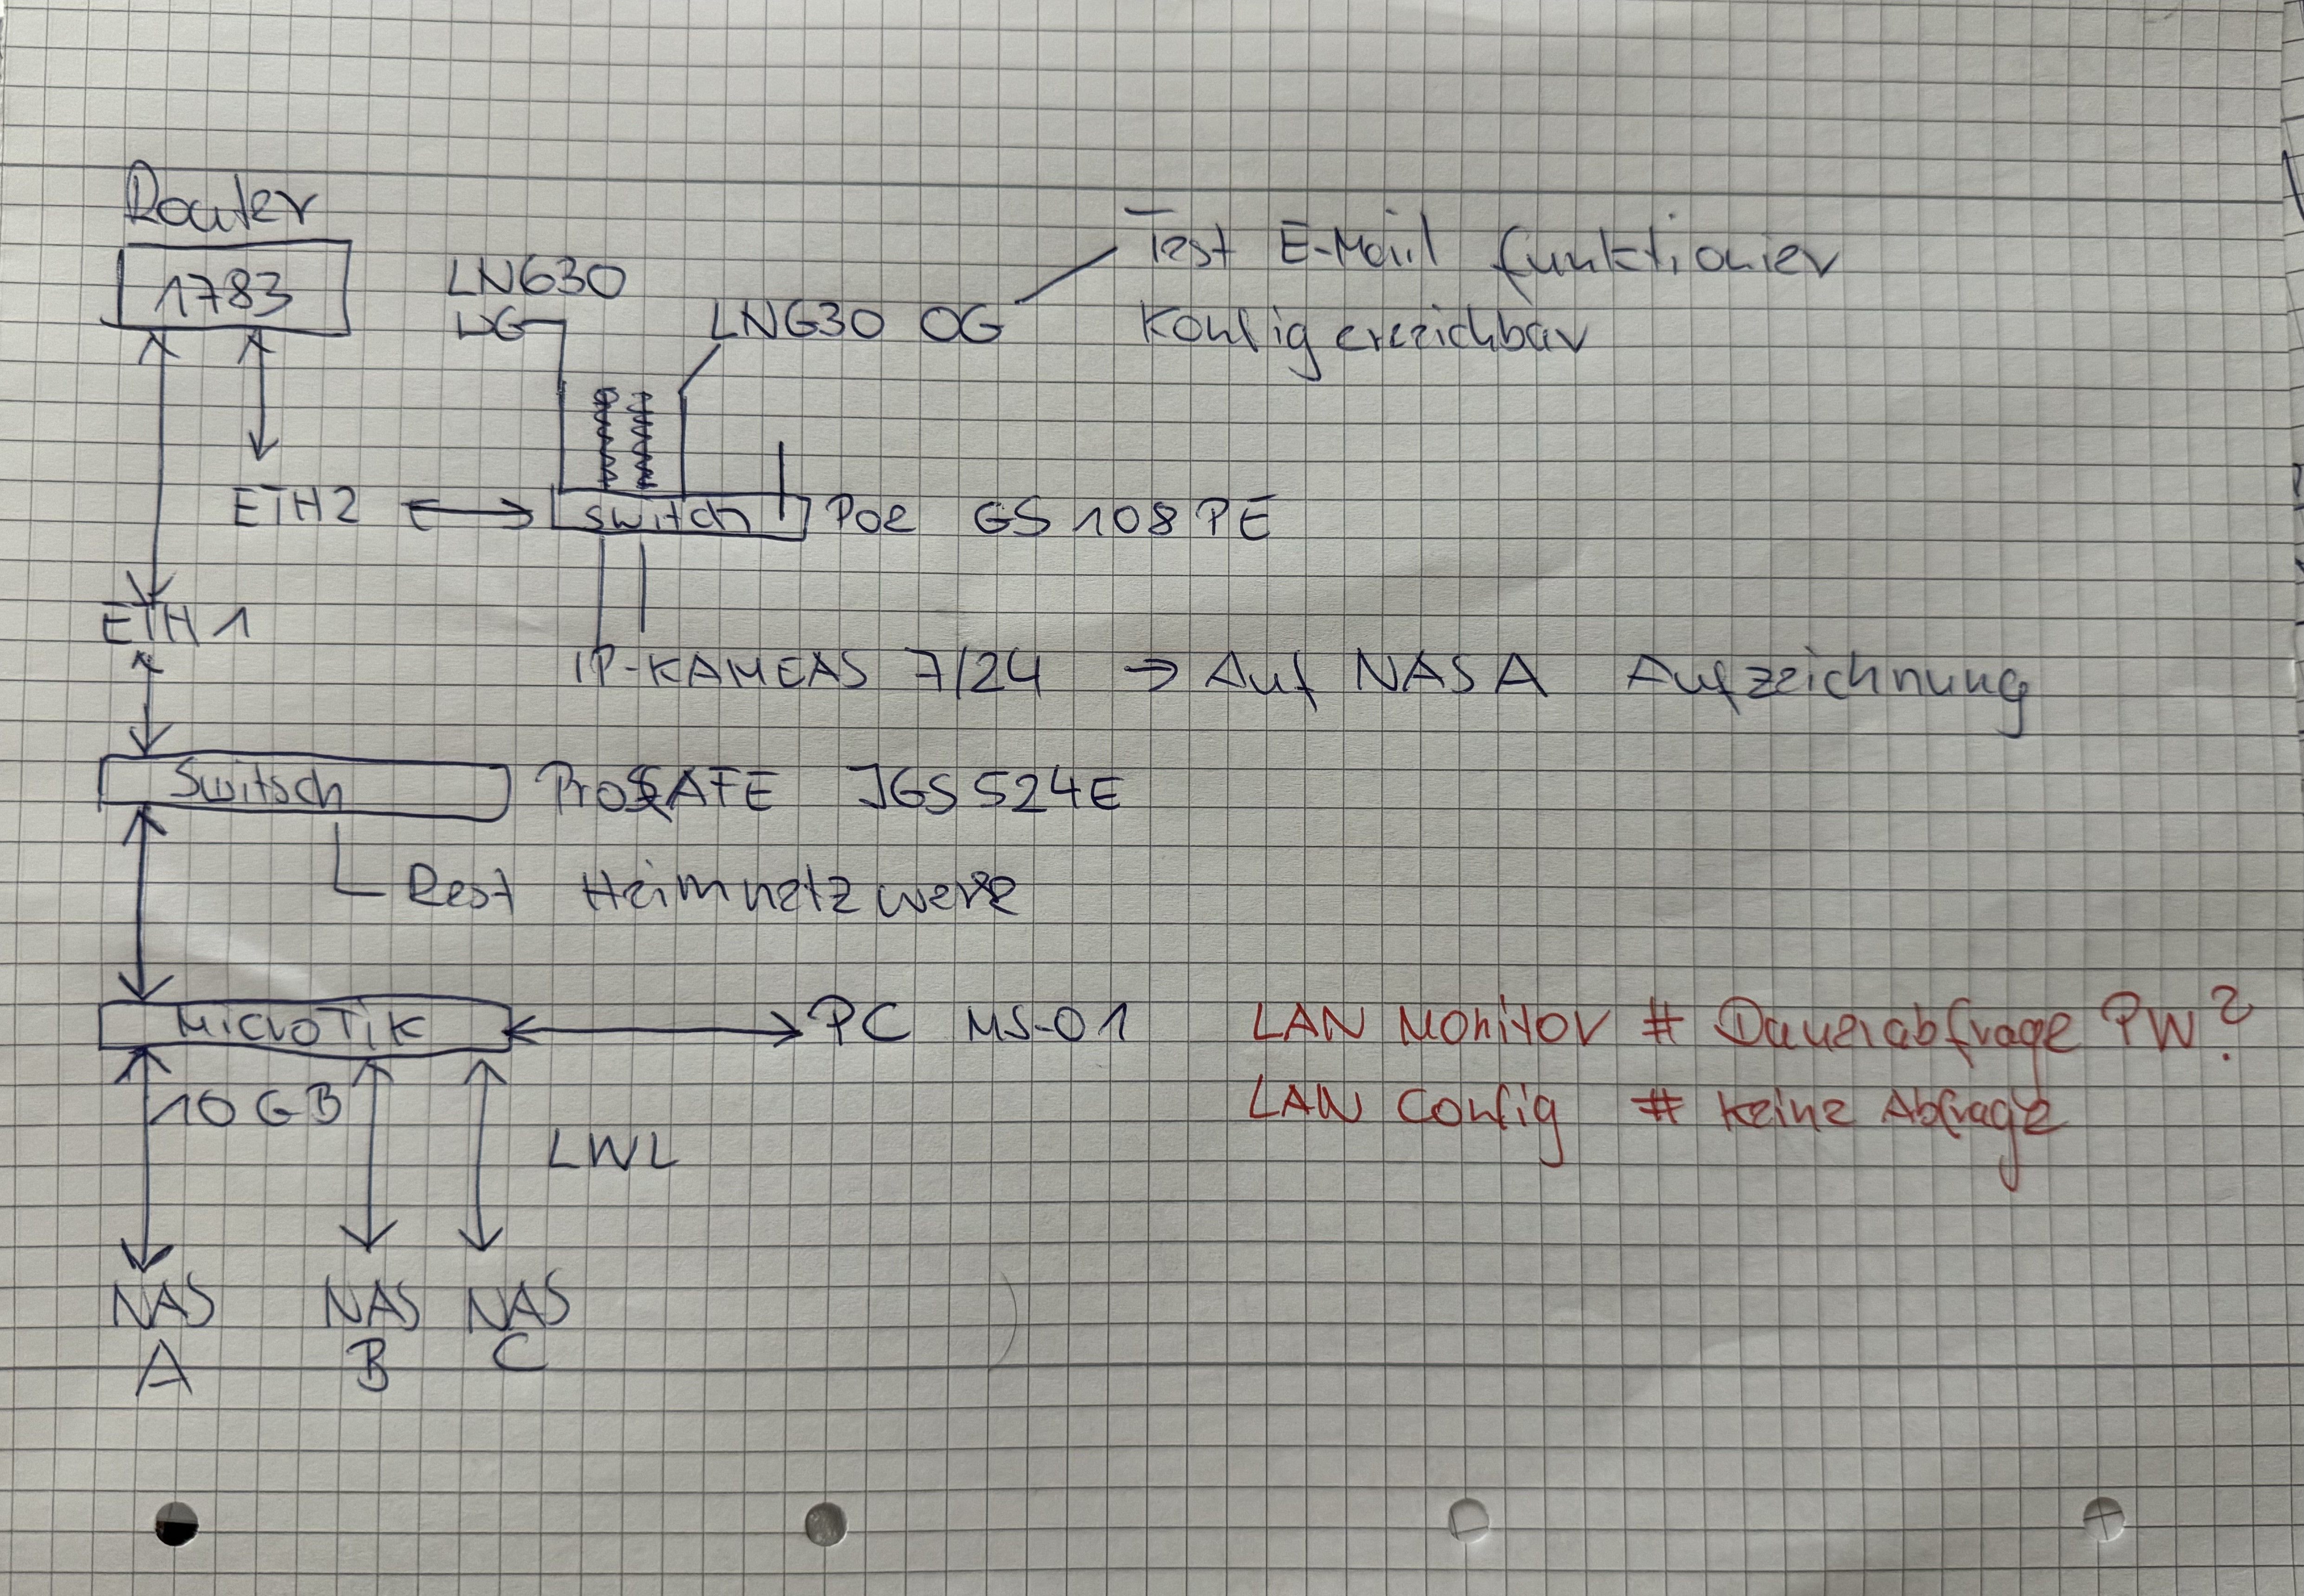 Router
1783
LN630
DG
LN630 OG
Test E-Mail funktionier
Konfig erreichbar
ETH2
Switch
Poe GS 108 PE
ETH 1
IP-KAMEAS 7/24 → Auf NAS A Aufzeichnung
Switsch
ProSAFE JGS 524E
Rest Heimnetzwerk
MicroTiK
PC MS-01
LAN Monitor # Dauerabfrage PW?
LAN Config # keine Abfrage
10 GB
LWL
NAS
A
NAS
B
NAS
C